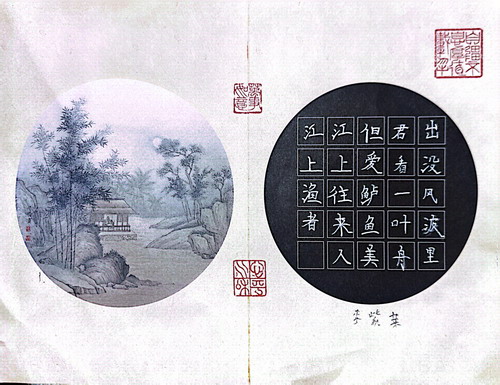 江上渔者
江上往来人
但爱鲈鱼美
君看一叶舟
出没风浪里